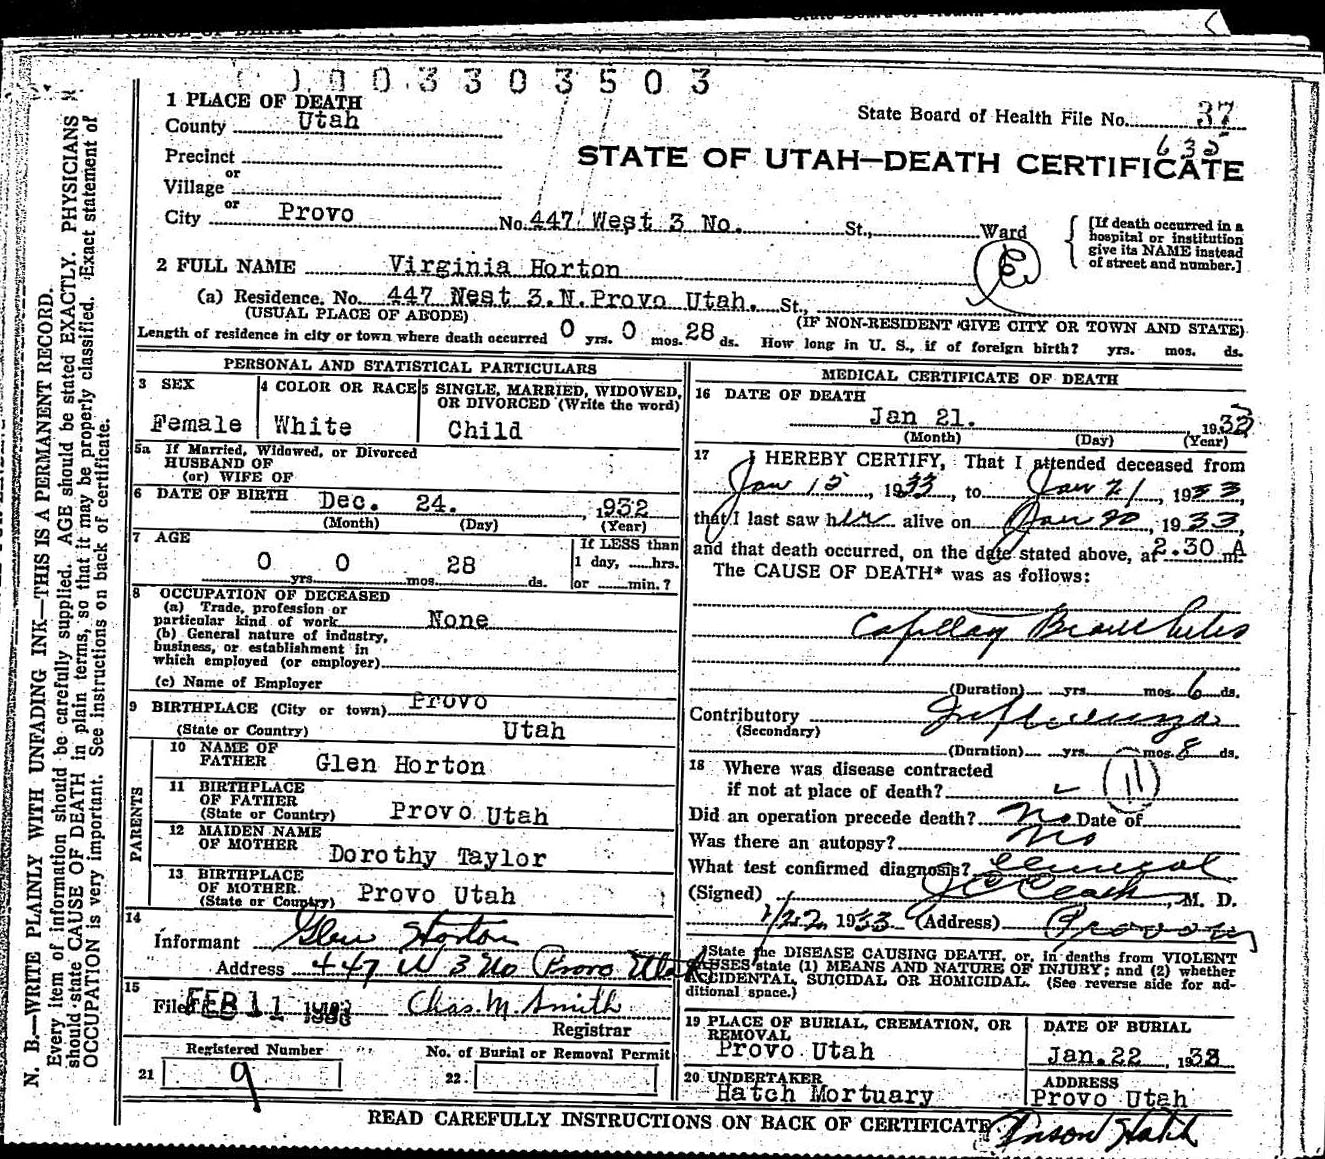 0 0 0 3 3 0 3 5 0 3
1 PLACE OF DEATH
County Utah
State Board of Health File No. 37
635
Precinct
or
Village
STATE OF UTAH—DEATH CERTIFICATE
or
City Provo No. 447 West 3 No. St., Ward
[If death occurred in a hospital or institution give its NAME instead of street and number.]
2 FULL NAME Virginia Horton
(a) Residence. No. 447 West 3.N. Provo Utah. St.,
(USUAL PLACE OF ABODE) (IF NON-RESIDENT GIVE CITY OR TOWN AND STATE)
Length of residence in city or town where death occurred 0 yrs. 0 mos. 28 ds. How long in U. S., if of foreign birth? yrs. mos. ds.
PERSONAL AND STATISTICAL PARTICULARS
3 SEX
Female
4 COLOR OR RACE
White
5 SINGLE, MARRIED, WIDOWED,
OR DIVORCED (Write the word)
Child
5a If Married, Widowed, or Divorced
HUSBAND OF
(or) WIFE OF
6 DATE OF BIRTH Dec. 24. , 1932
(Month) (Day) (Year)
7 AGE
0 yrs. 0 mos. 28 ds.
If LESS than
1 day, hrs.
or min.?
8 OCCUPATION OF DECEASED
(a) Trade, profession or
particular kind of work None
(b) General nature of industry,
business, or establishment in
which employed (or employer)
(c) Name of Employer
9 BIRTHPLACE (City or town) Provo
(State or Country) Utah
PARENTS
10 NAME OF
FATHER Glen Horton
11 BIRTHPLACE
OF FATHER
(State or Country) Provo Utah
12 MAIDEN NAME
OF MOTHER Dorothy Taylor
13 BIRTHPLACE
OF MOTHER.
(State or Country) Provo Utah
14
Informant Glen Horton
Address 447 W 3 No Provo Utah
15
Filed FEB 11 1933 Chas. M. Smith
Registrar
Registered Number
21 9
No. of Burial or Removal Permit
22.
MEDICAL CERTIFICATE OF DEATH
16 DATE OF DEATH
Jan 21. 1933
(Month) (Day) (Year)
17 I HEREBY CERTIFY, That I attended deceased from
Jan 15, 1933, to Jan 21, 1933,
that I last saw her alive on Jan 20, 1933,
and that death occurred, on the date stated above, at 2.30 A m.
The CAUSE OF DEATH* was as follows:
Capillary Bronchitis
(Duration) yrs. mos. 6 ds.
Contributory Influenza
(Secondary)
(Duration) yrs. mos. 8 ds.
18 Where was disease contracted
if not at place of death? 11
Did an operation precede death? No Date of
Was there an autopsy? No
What test confirmed diagnosis?
(Signed) M. D.
1/22 1933 (Address) Provo
*State the DISEASE CAUSING DEATH, or, in deaths from VIOLENT
CAUSES state (1) MEANS AND NATURE OF INJURY; and (2) whether
ACCIDENTAL, SUICIDAL OR HOMICIDAL. (See reverse side for ad-
ditional space.)
19 PLACE OF BURIAL, CREMATION, OR
REMOVAL
Provo Utah
DATE OF BURIAL
Jan. 22, 1933
20 UNDERTAKER
Hatch Mortuary
ADDRESS
Provo Utah
READ CAREFULLY INSTRUCTIONS ON BACK OF CERTIFICATE.
N. B.—WRITE PLAINLY WITH UNFADING INK—THIS IS A PERMANENT RECORD.
Every item of information should be carefully supplied. AGE should be stated EXACTLY. PHYSICIANS
should state CAUSE OF DEATH in plain terms, so that it may be properly classified. Exact statement of
OCCUPATION is very important. See instructions on back of certificate.